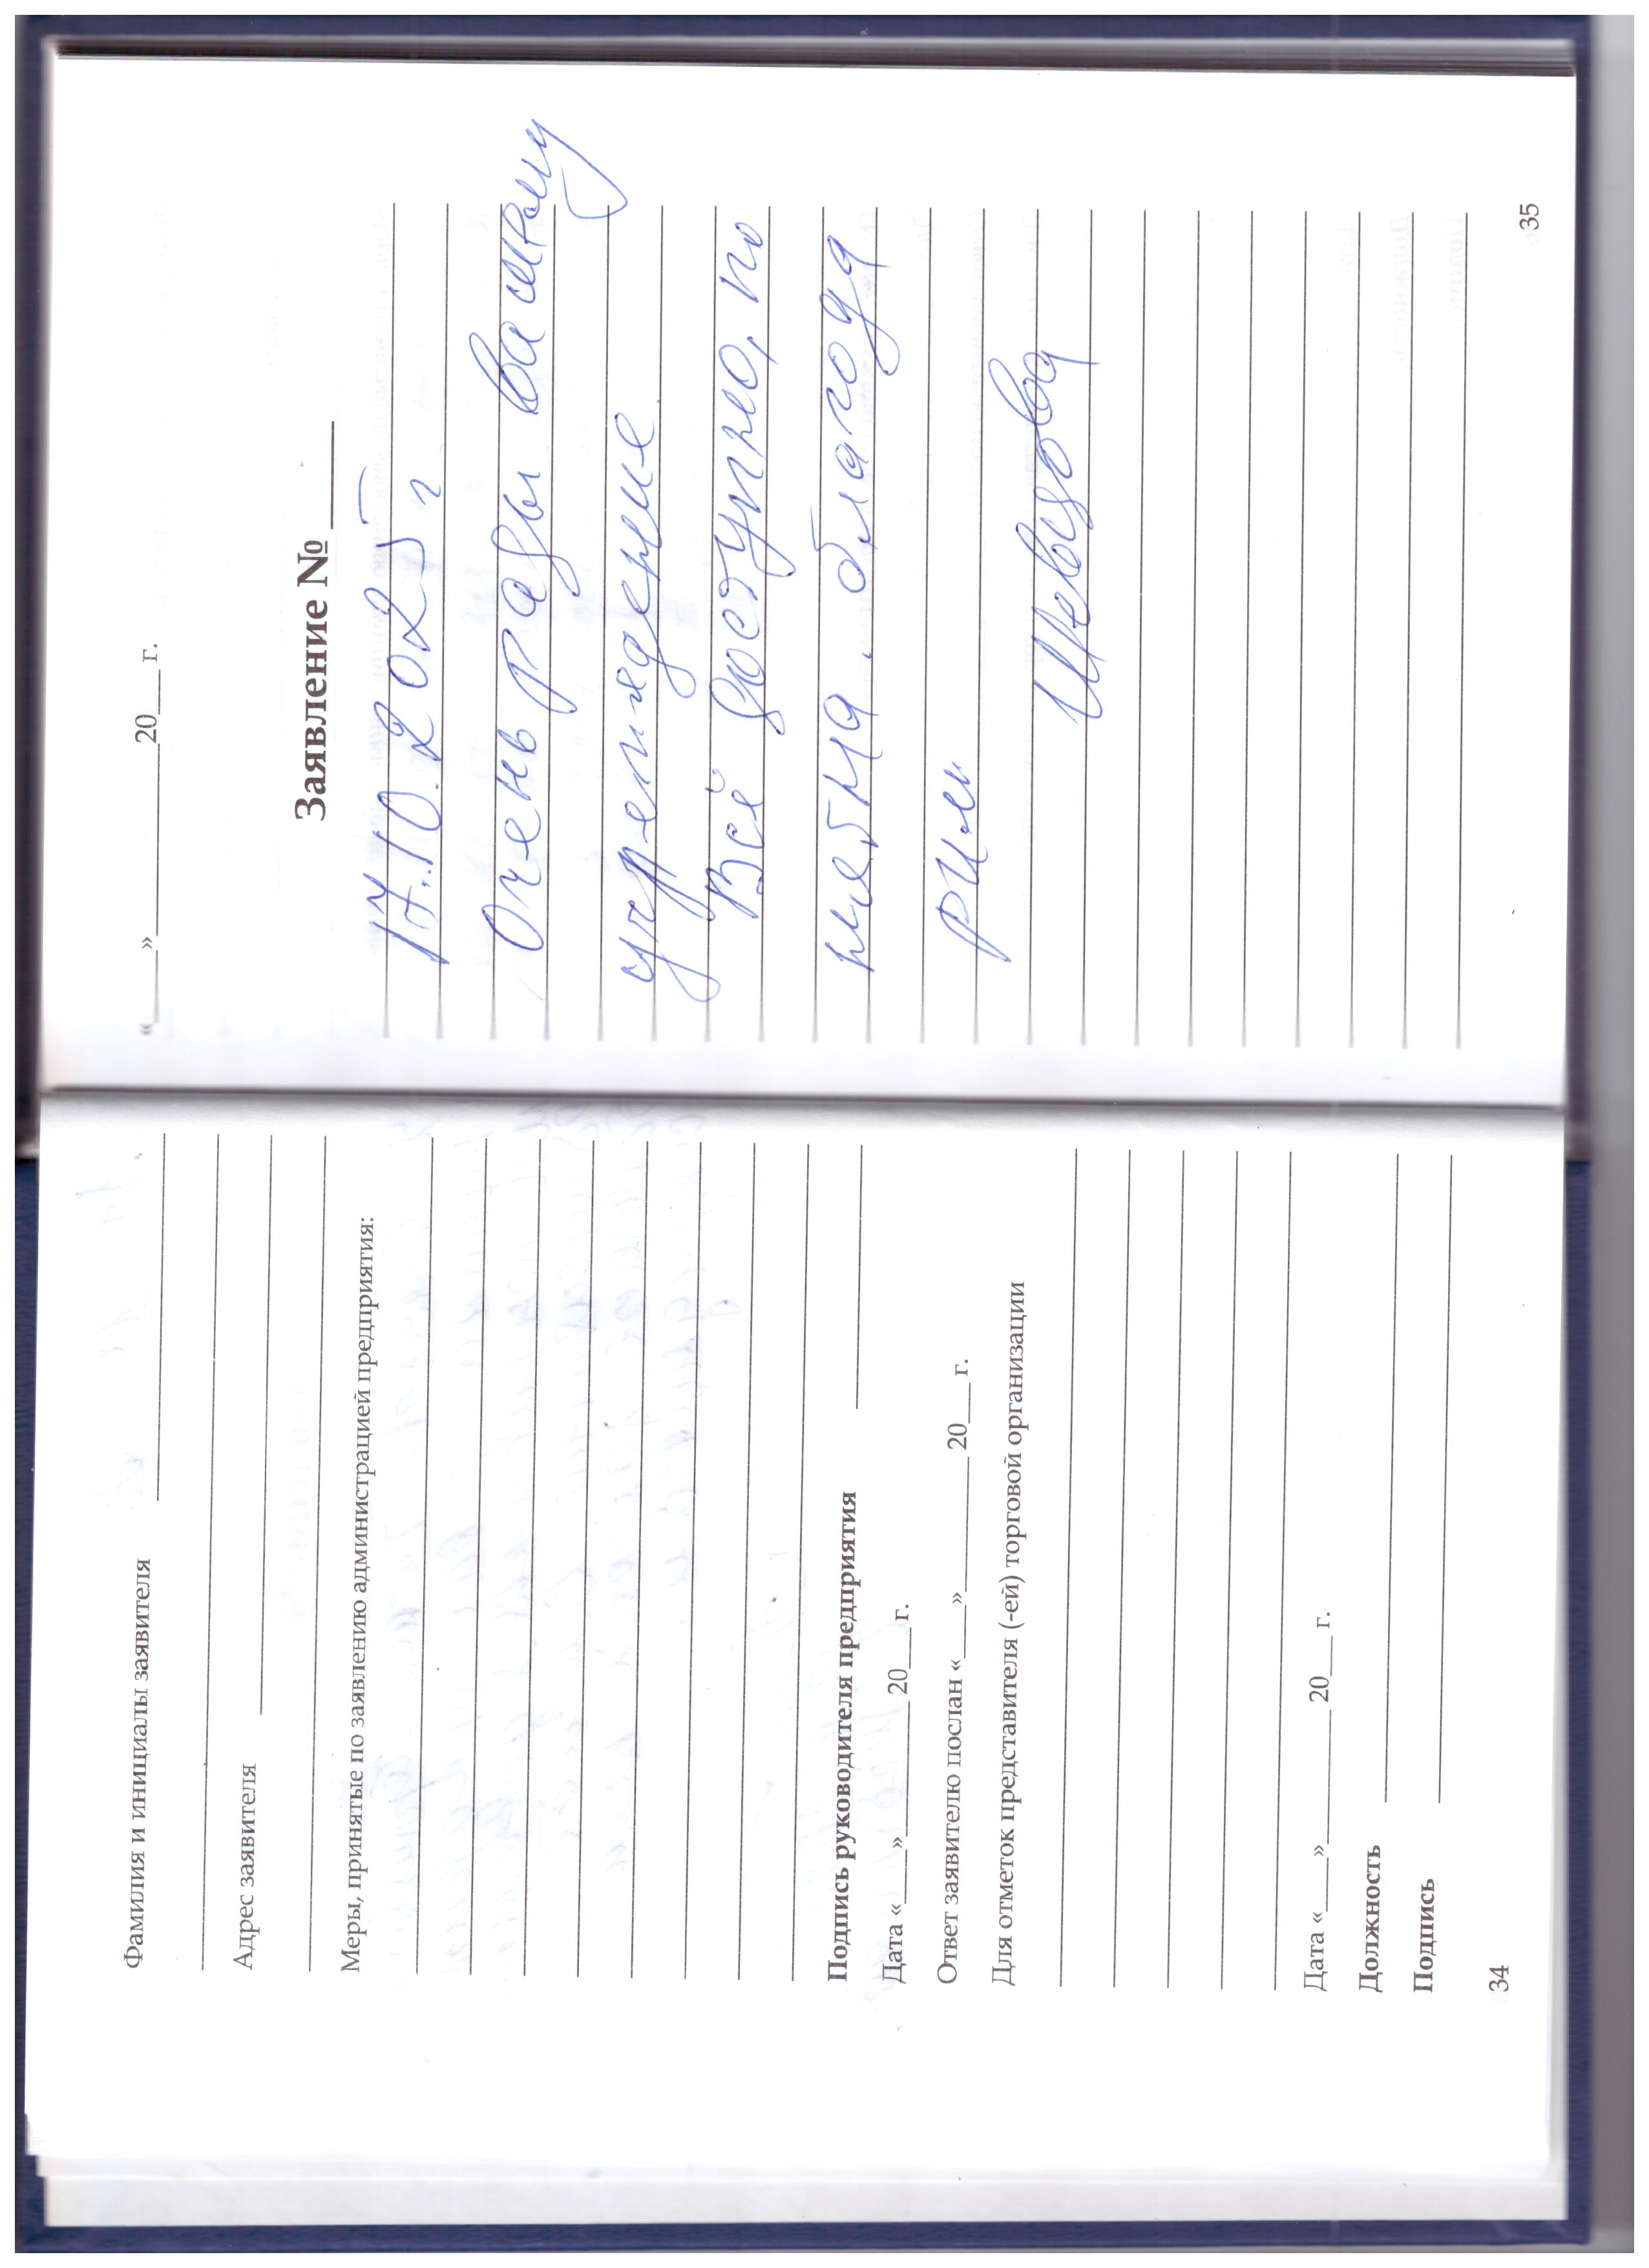 Фамилия и инициалы заявителя
Адрес заявителя
Меры, принятые по заявлению администрацией предприятия:
Подпись руководителя предприятия
Дата «____»__________ 20___ г.
Ответ заявителю послан «____»__________ 20___ г.
Для отметок представителя (-ей) торговой организации
Дата «____»__________ 20___ г.
Должность
Подпись
34
«____»______________20___ г.
Заявление № ______
17.10.2025 г
Очень рады вашему
учреждение.
Всё доступно, по
нятна. благода
рим
Шевызова
35